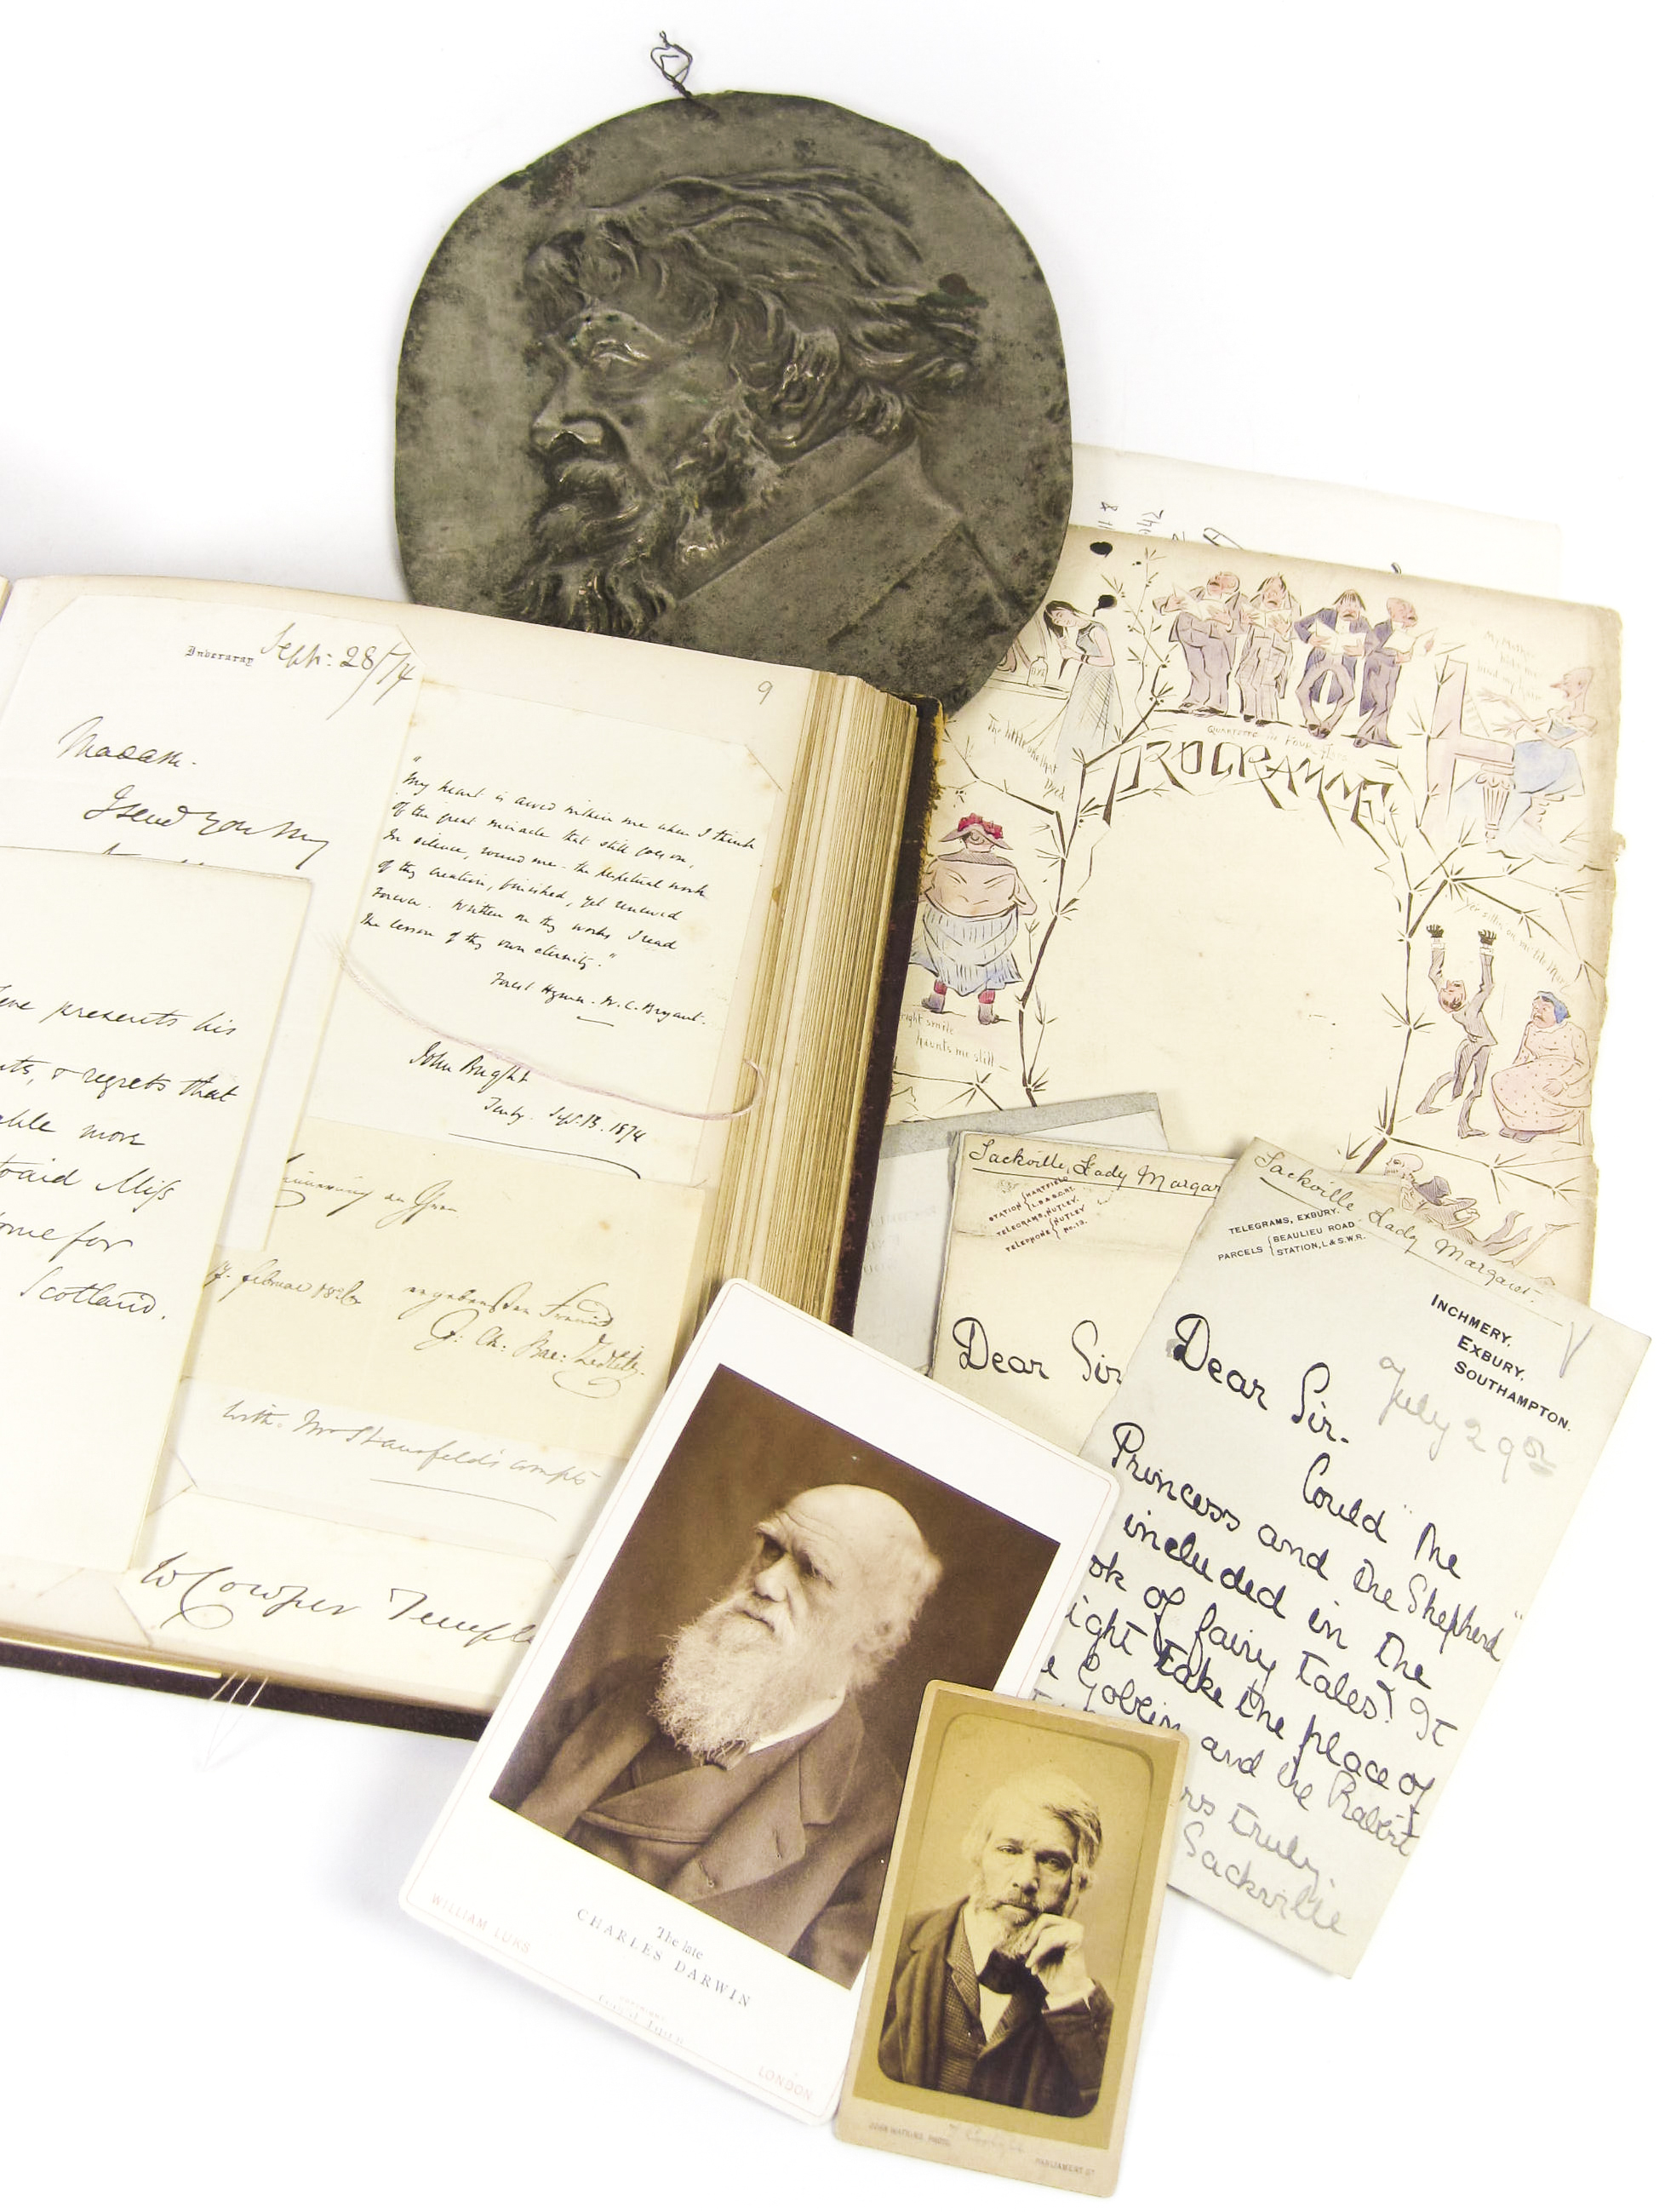 Inveraray Sept: 28/74
Madam.
I send you my
9
"My heart is awed within me when I think
Of the great miracle that still goes on,
In silence, round me - the perpetual work
Of thy creation, finished, yet renewed
Forever. Written on thy works I read
The lesson of thy own eternity."
Forest Hymn. W. C. Bryant.
John Bright
Tenby. Sept. 13. 1874
presents his
& regrets that
more
to aid Miss
for
Scotland.
With. Mr Stansfeld's compts
W Cowper Temple
The little she had
Quartette in Four Flats
PROGRAMME
My Mother
bids me
bind my hair
bright smile
haunts me still
Sackville, Lady Margar
STATION HARTFIELD
L.B.&S.C.RY.
TELEGRAMS, NUTLEY.
TELEPHONE NUTLEY
No. 13.
Dear Sir
Sackville, Lady Margaret.
TELEGRAMS, EXBURY.
PARCELS BEAULIEU ROAD
STATION, L & S.W.R.
INCHMERY,
EXBURY,
SOUTHAMPTON.
July 29
Dear Sir.
Could "The
Princess and the Shepherd"
included in the
ok of fairy tales? It
ight take the place of
e Goblin and the Rabbit
rs truly
Sackville
The late
CHARLES DARWIN
WILLIAM LUKS
LONDON
JOHN WATKINS PHOTO
PARLIAMENT ST